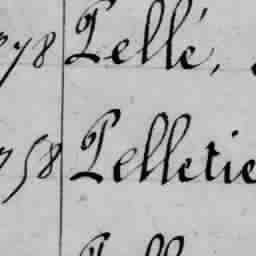 78 Pellé,
758 Pelletie